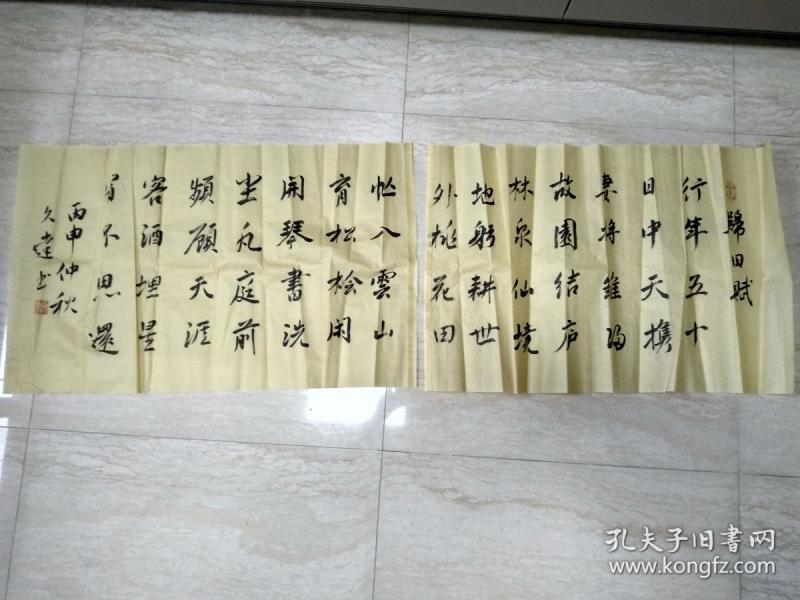 歸田賦
行年五十
日中天携
妻将雏归
故園结庐
林泉仙境
地躬耕世
外桃花田
忙入雲山
育松桧闲
開琴書洗
塵凡庭前
頻顧天涯
客酒埋星
月不思還
丙申仲秋
久達书
孔夫子旧書网
www.kongfz.com